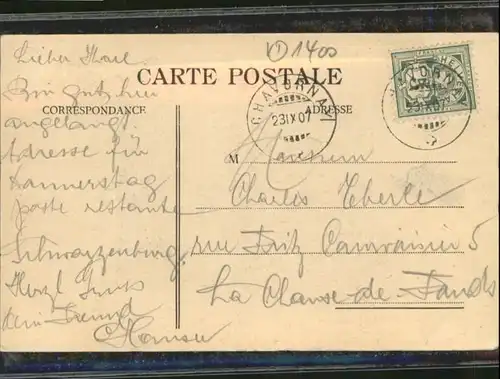 VD 1400
CARTE POSTALE
CORRESPONDANCE
ADRESSE
CHAVORNAY
23IX07
Lieber Karl
Bin gut hier
angelangt.
Adresse für
Donnerstag
poste restante
Schwarzenburg
Herzl Gruss
dein Freund
Hansu
M
Charles Eberle
rue Fritz Courvoisier 5
La Chaux-de-Fonds